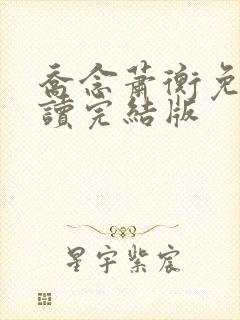 喬念蕭衡免
讀完結版
星宇紫宸